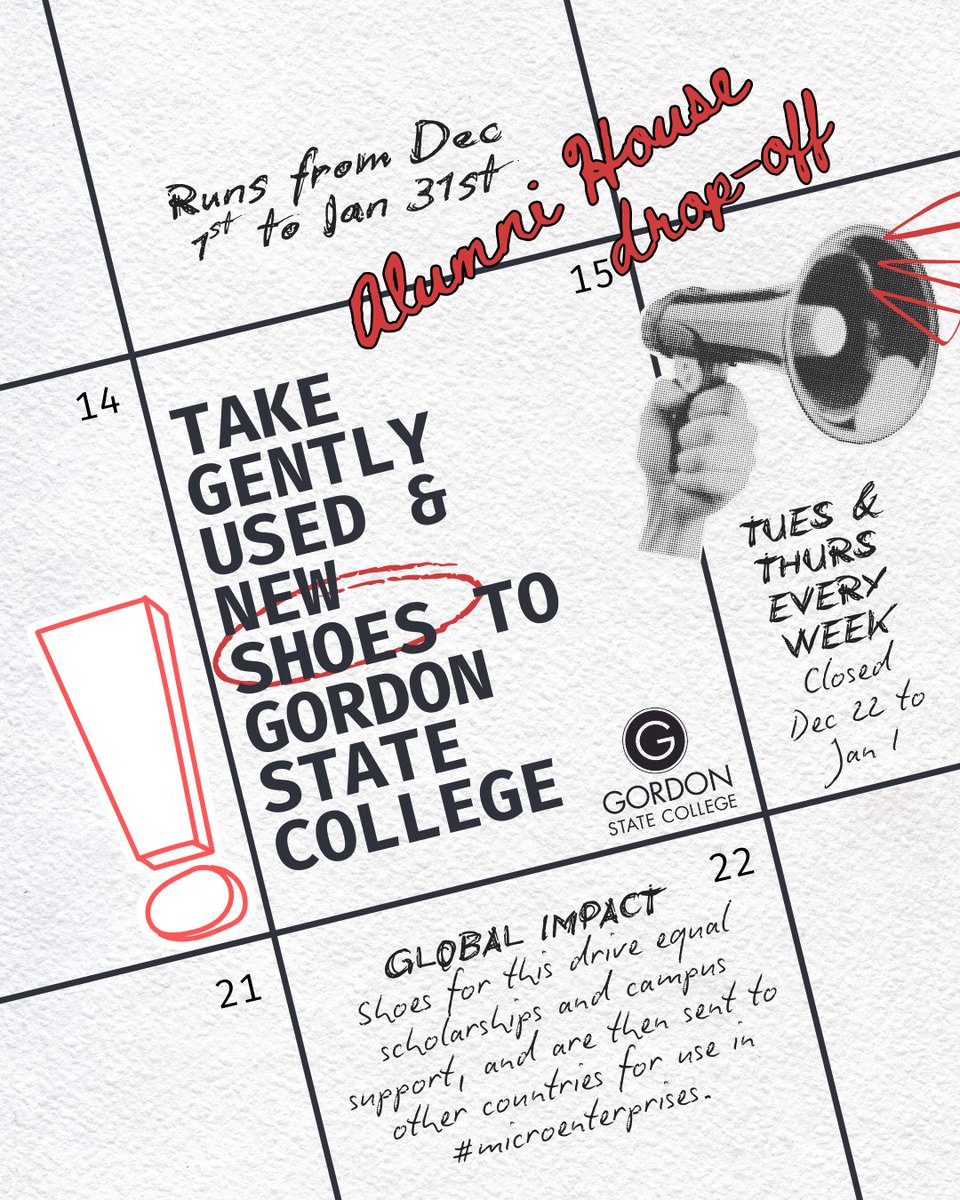 Runs from Dec
1st to Jan 31st
Alumni House
drop-off
15
14
TAKE
GENTLY
USED &
NEW
SHOES TO
GORDON
STATE
COLLEGE
TUES &
THURS
EVERY
WEEK
Closed
Dec 22 to
Jan 1
G
GORDON
STATE COLLEGE
22
21
GLOBAL IMPACT
Shoes for this drive equal
scholarships and campus
support, and are then sent to
other countries for use in
#microenterprises.